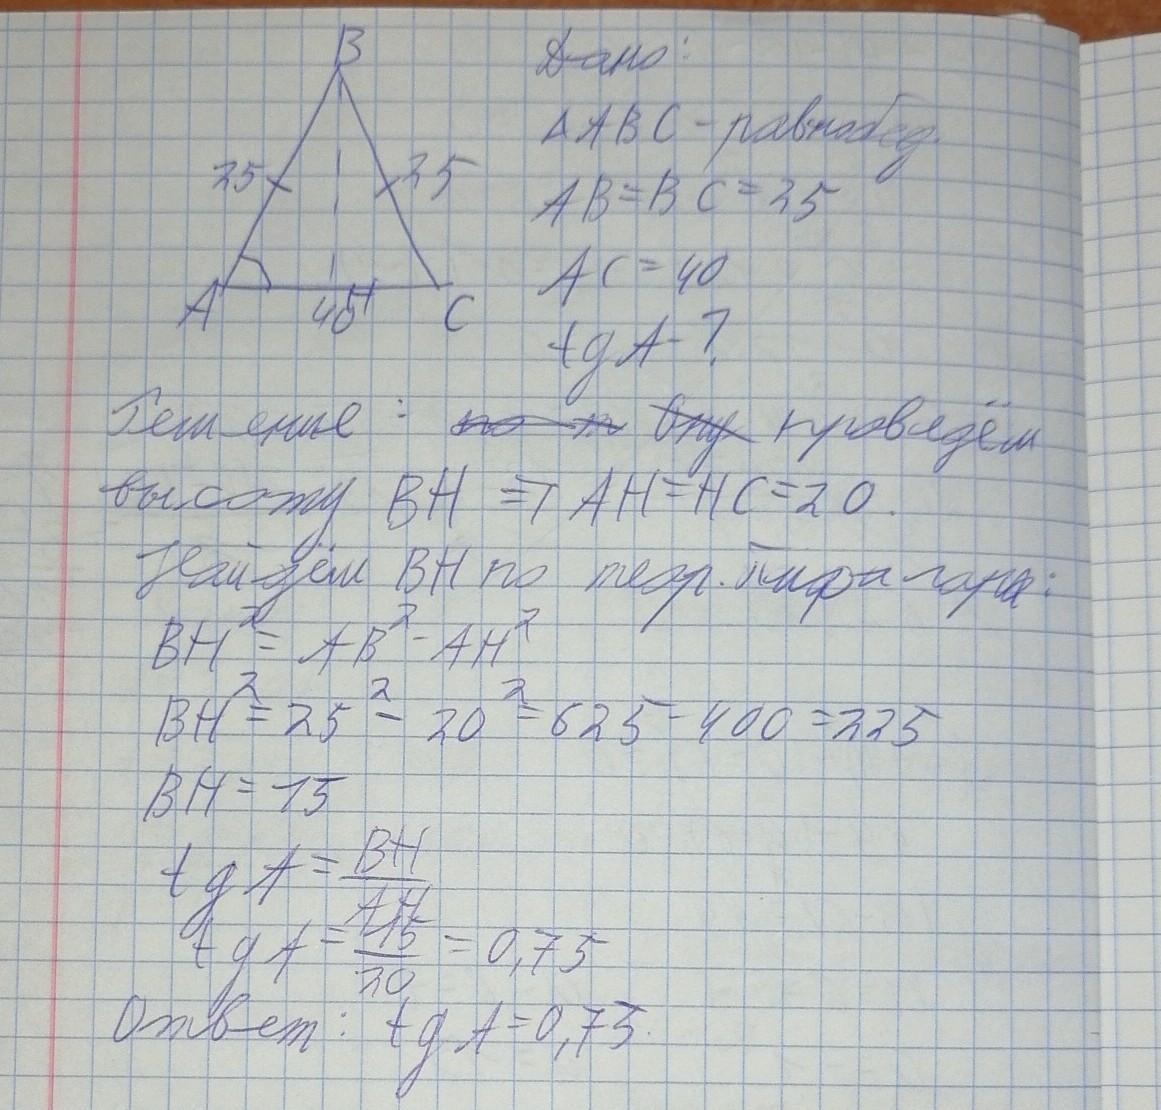 B
25
25
A
40
H
C
Дано:
ΔABC - равнобед.
AB=BC=25
AC=40
tg A-?
Решение: проведём
высоту BH => AH=HC=20.
Найдём BH по теор. Пифагора:
BH²=AB²-AH²
BH²=25²-20²=625-400=225
BH=15
tg A=BH/AH
tg A=15/20=0,75
Ответ: tg A=0,75.